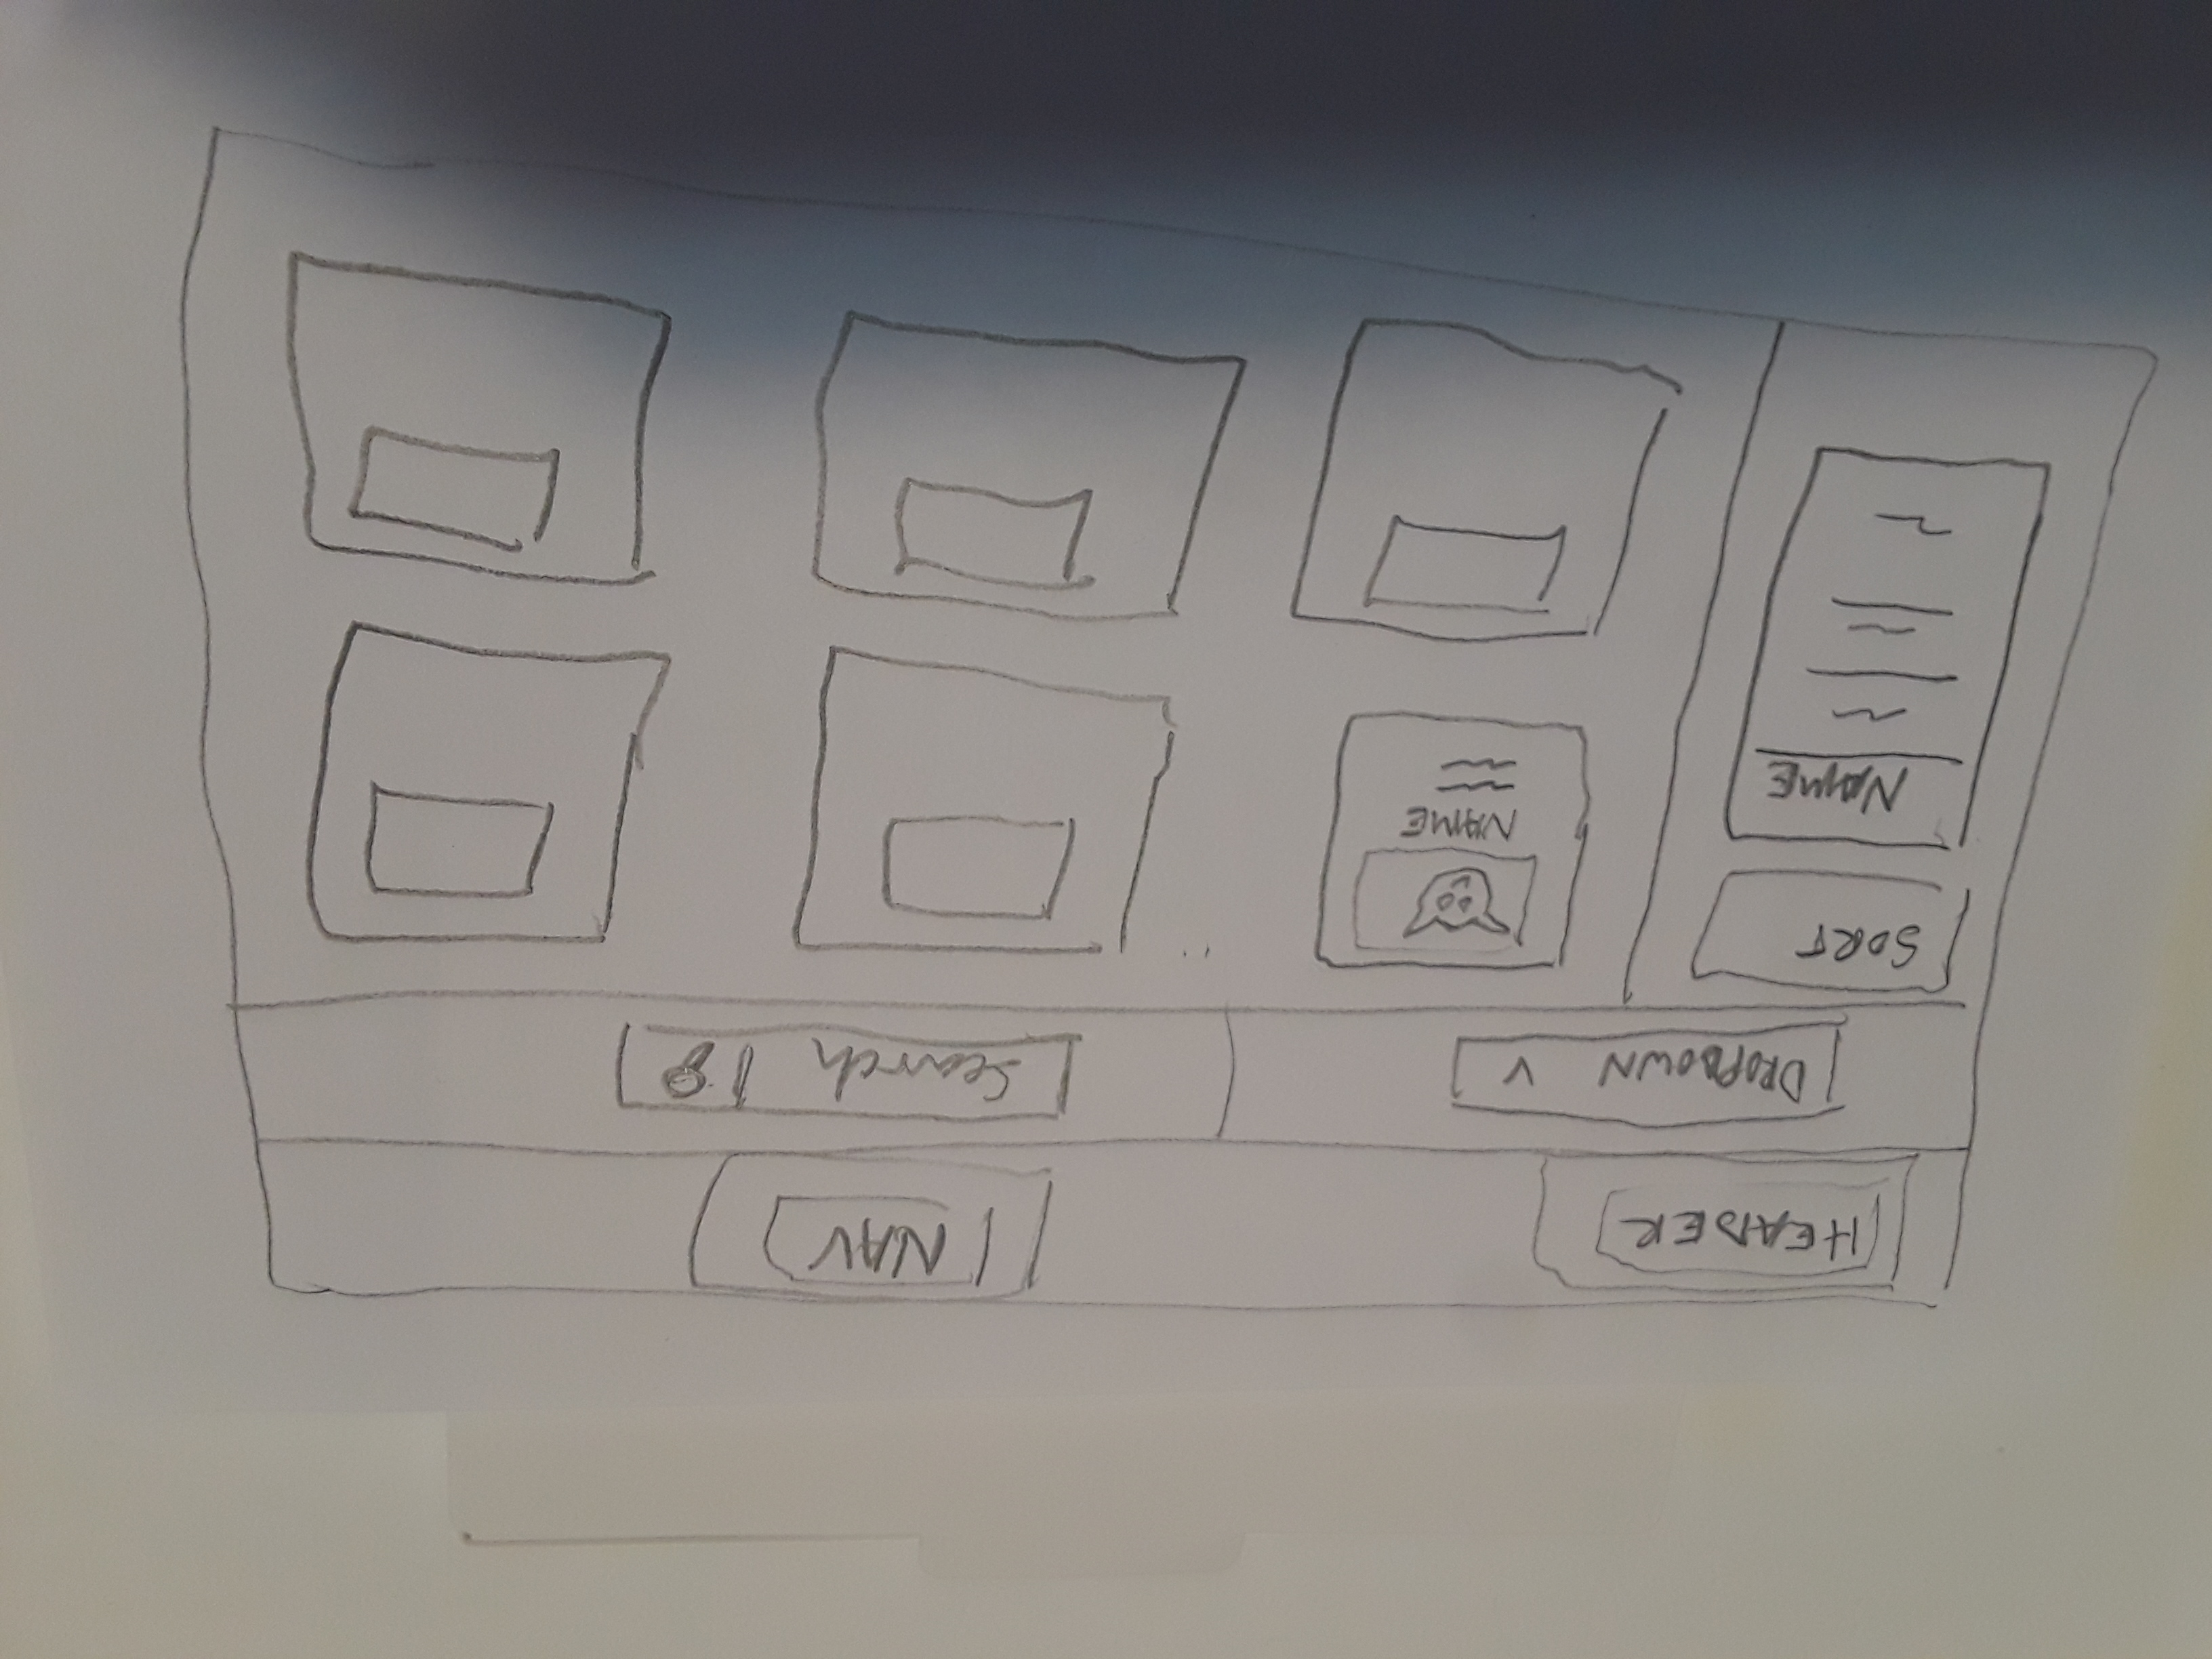 HEADER
NAV
DROPDOWN V
Search
SORT
NAME
NAME